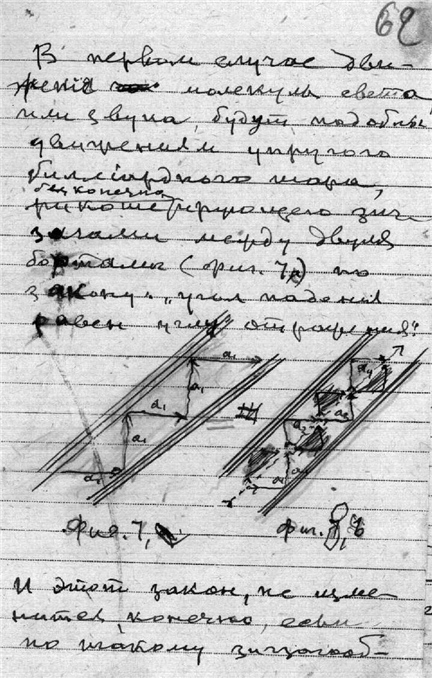 62
В первом случае дви-
жения молекул света
или звука, будут подобны
движениям упругого
биллiардного шара,
безконечно
рикошетирующего зиг-
загами между двумя
бортами (фиг. 7) по
закону: „угол падения
равен углу отражения“.
a₁ a₁ a₁ a₁ a₁
a₂ a₃ a₄
Фиг. 7, фиг. 8,
И этот закон, не изме-
нится, конечно, если
по такому зигзагооб-